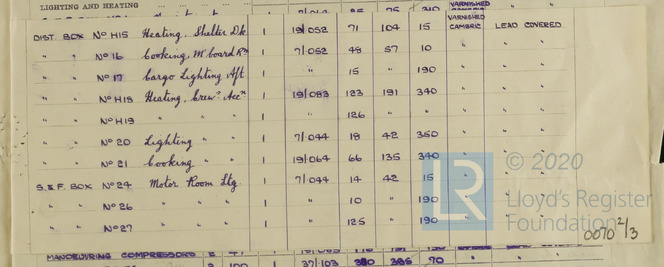 LIGHTING AND HEATING
VARNISHED CAMBRIC
DIST BOX No H15 Heating, Shelter Dk 1 19/052 71 104 15 VARNISHED CAMBRIC LEAD COVERED
" " No 16 Cooking, M'board Rm 1 7/052 48 57 10 " " "
" " No 17 Cargo Lighting Aft 1 " 15 " 190 " " "
" " No H18 Heating, Crews Accn 1 19/083 123 191 340 " " "
" " No H19 " " " 1 " 126 " " " " "
" " No 20 Lighting " " 1 7/044 18 42 350 " " "
" " No 21 Cooking " " 1 19/064 66 135 340 " " "
S.&F. BOX No 24 Motor Room Ltg 1 7/044 14 42 15 " " "
" " No 26 " " " 1 " 10 " 190 " " "
" " No 27 " " " 1 " 125 " 190 " " "
MANOEUVRING COMPRESSORS 2
2 100 1 37/103 380 386 70
LR © 2020
Lloyd's Register
Foundation
0070 2/3